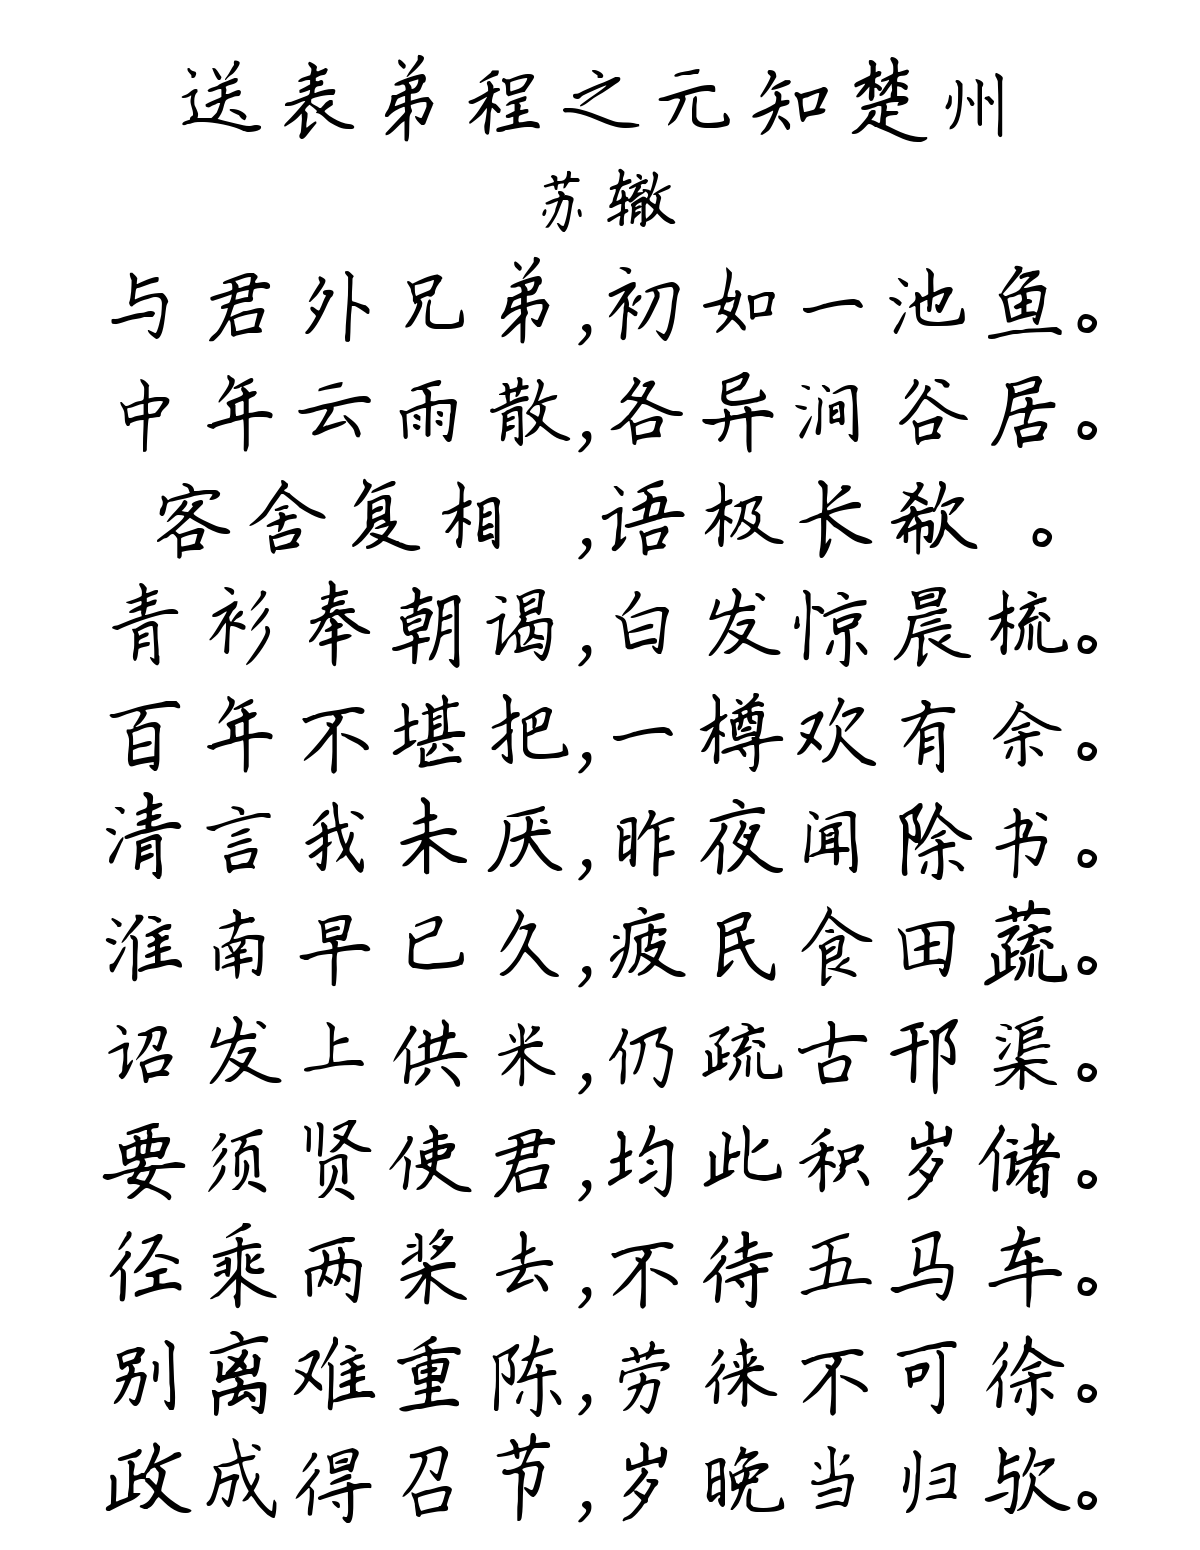 送表弟程之元知楚州
苏辙
与君外兄弟,初如一池鱼。
中年云雨散,各异涧谷居。
客舍复相 ,语极长欷 。
青衫奉朝谒,白发惊晨梳。
百年不堪把,一樽欢有余。
清言我未厌,昨夜闻除书。
淮南早已久,疲民食田蔬。
诏发上供米,仍疏古邗渠。
要须贤使君,均此积岁储。
径乘两桨去,不待五马车。
别离难重陈,劳徕不可徐。
政成得召节,岁晚当归欤。